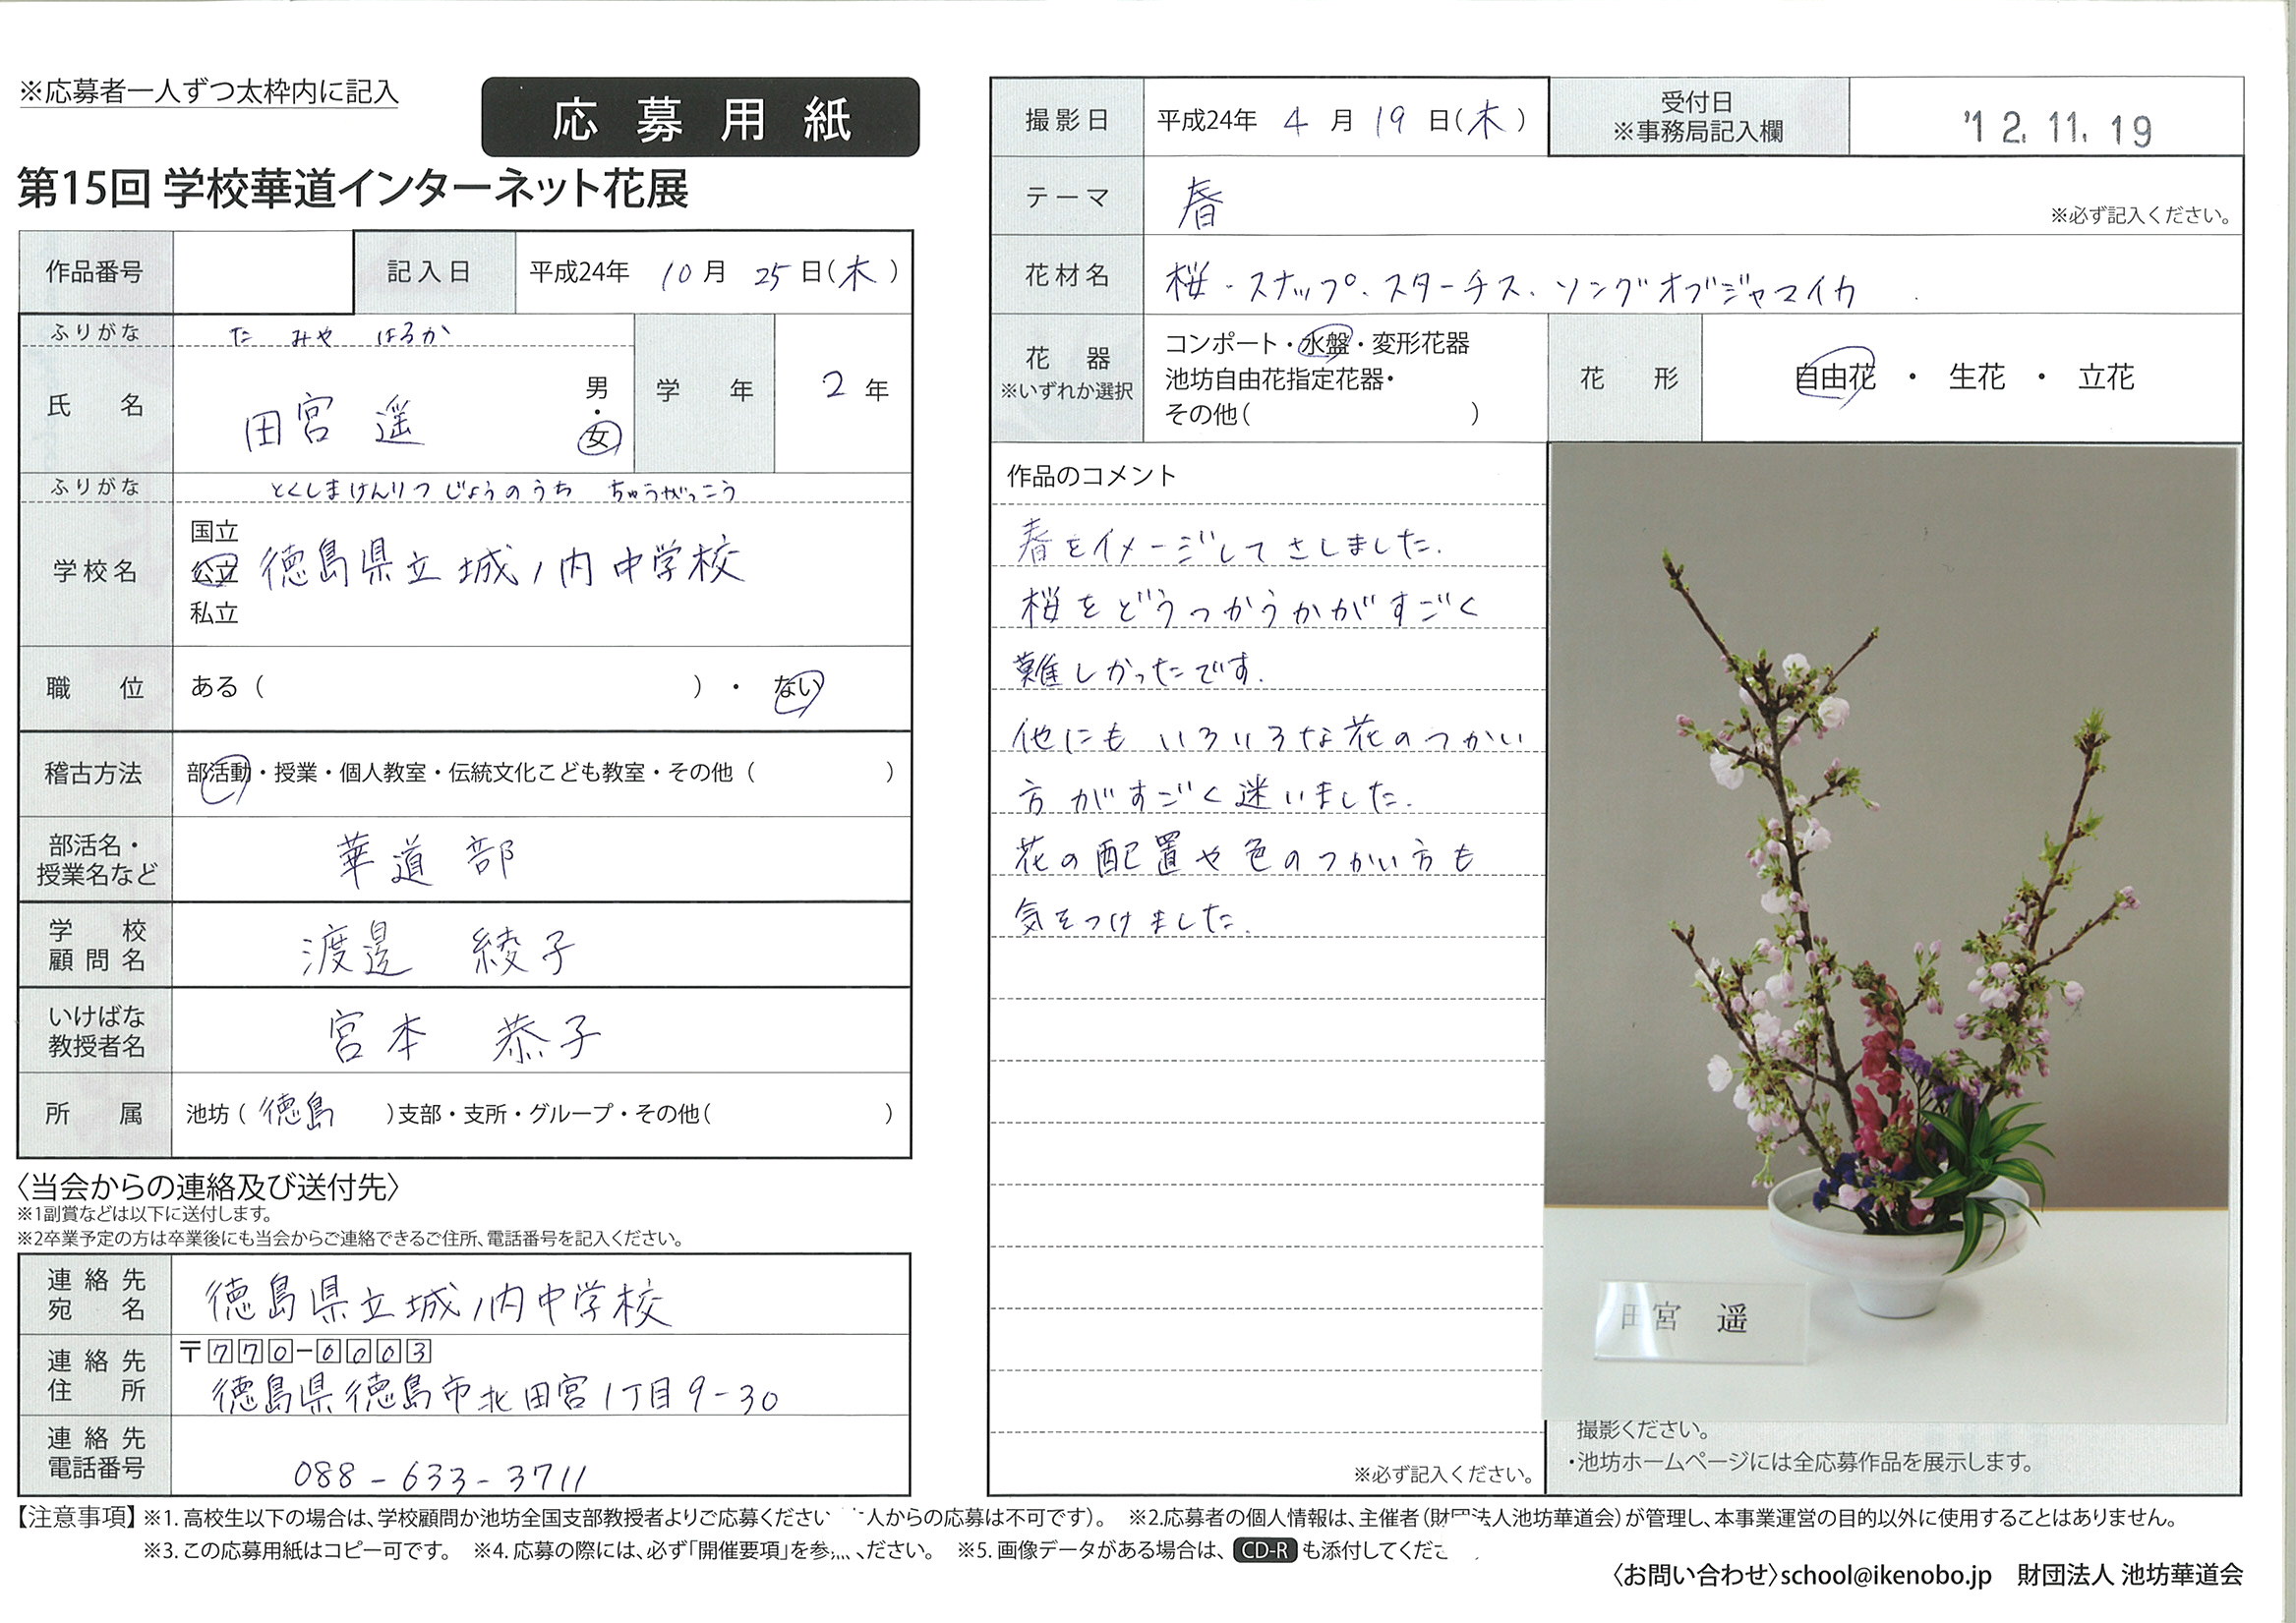 ※応募者一人ずつ太枠内に記入
応募用紙
第15回 学校華道インターネット花展
作品番号
記入日 平成24年 10月 25日(木)
ふりがな た みや はるか
氏名 田宮 遥 男・女
学年 2年
ふりがな とくしまけんりつじょうのうち ちゅうがっこう
学校名 国立 公立 私立 徳島県立城ノ内中学校
職位 ある( )・ない
稽古方法 部活動・授業・個人教室・伝統文化こども教室・その他( )
部活名・授業名など 華道部
学校顧問名 渡邊 綾子
いけばな教授者名 宮本 恭子
所属 池坊(徳島 )支部・支所・グループ・その他( )
〈当会からの連絡及び送付先〉
※1副賞などは以下に送付します。
※2卒業予定の方は卒業後にも当会からご連絡できるご住所、電話番号を記入ください。
連絡先宛名 徳島県立城ノ内中学校
連絡先住所 〒770-0003
徳島県徳島市北田宮1丁目9-30
連絡先電話番号 088-633-3711
撮影日 平成24年 4月 19日(木)
受付日 ※事務局記入欄 '12.11.19
テーマ 春 ※必ず記入ください。
花材名 桜・スナップ・スターチス・ソングオブジャマイカ
花器 ※いずれか選択
コンポート・水盤・変形花器
池坊自由花指定花器・
その他( )
花形 自由花・生花・立花
作品のコメント
春をイメージしてさしました。
桜をどうつかうかがすごく
難しかったです。
他にもいろいろな花のつかい
方がすごく迷いました。
花の配置や色のつかい方も
気をつけました。
※必ず記入ください。
田宮 遥
撮影ください。
・池坊ホームページには全応募作品を展示します。
【注意事項】※1. 高校生以下の場合は、学校顧問か池坊全国支部教授者よりご応募ください 人からの応募は不可です)。 ※2.応募者の個人情報は、主催者(財団法人池坊華道会)が管理し、本事業運営の目的以外に使用することはありません。
※3. この応募用紙はコピー可です。 ※4. 応募の際には、必ず「開催要項」を参 ください。 ※5. 画像データがある場合は、CD-Rも添付してくだ
〈お問い合わせ〉school@ikenobo.jp 財団法人 池坊華道会